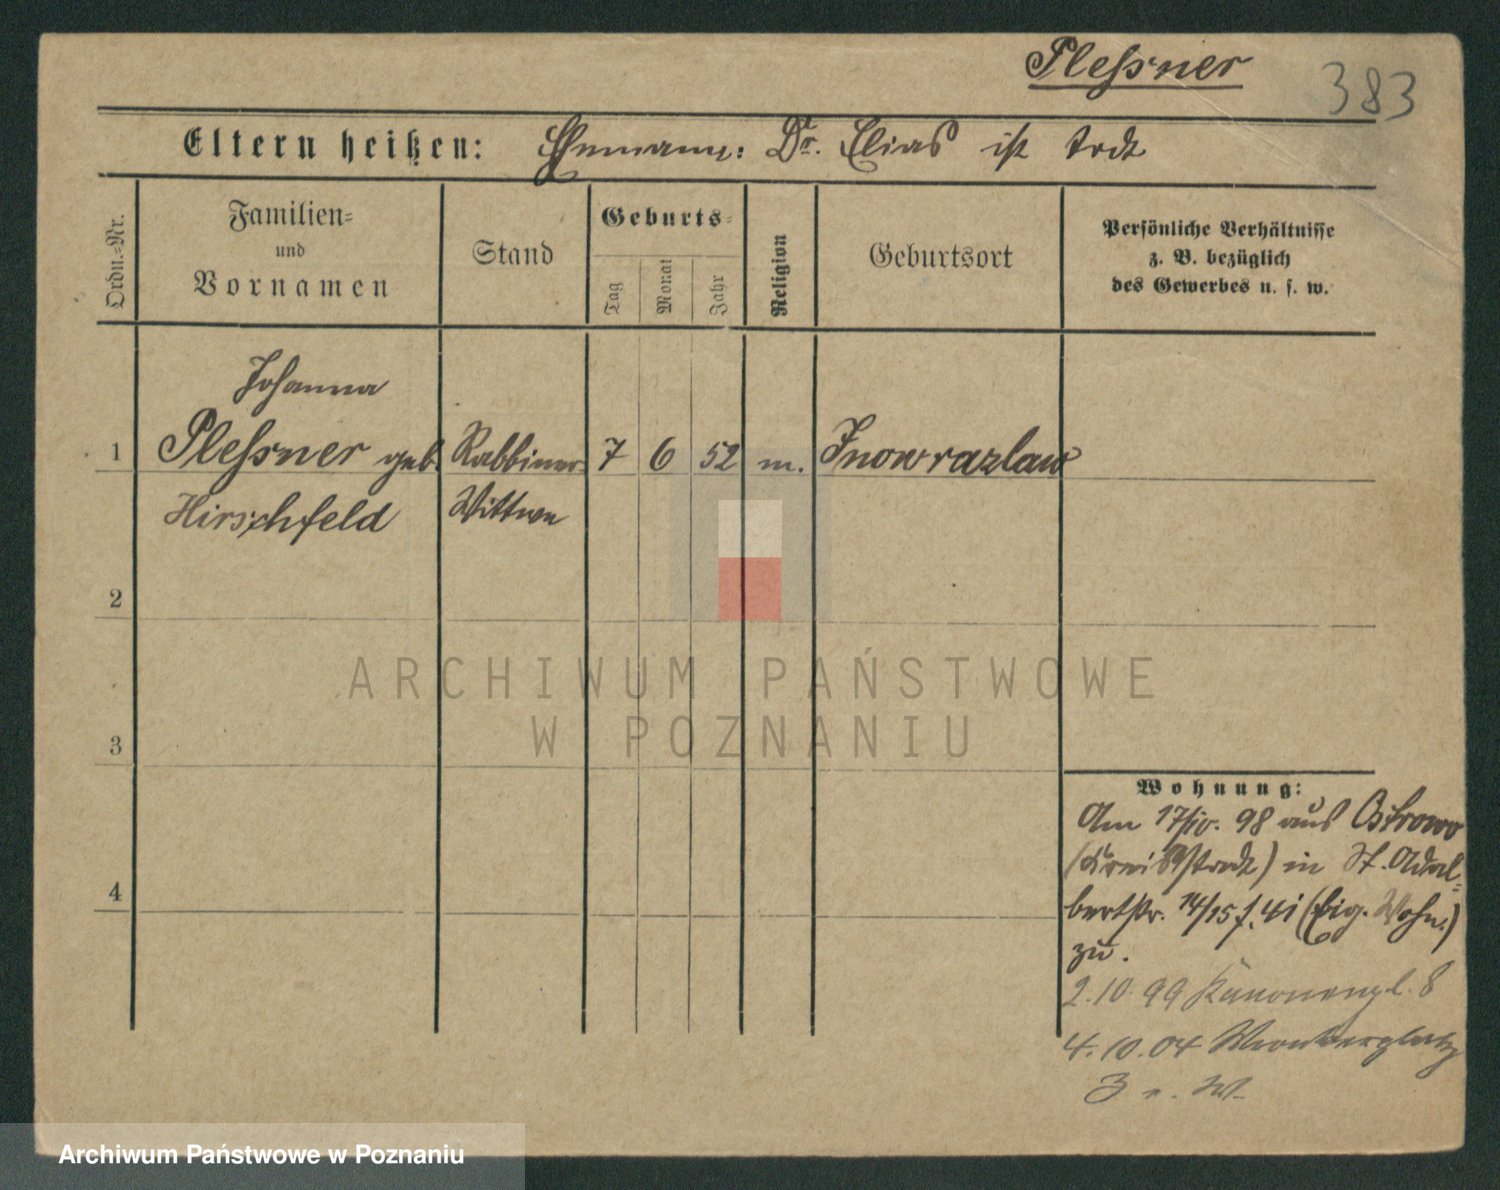 Pleſsner
383
Eltern heißen: Ehemann: Dr. Elias ist todt
Ordn.-Nr.
Familien-
und
Vornamen
Stand
Geburts-
Tag
Monat
Jahr
Religion
Geburtsort
Persönliche Verhältnisse
z. B. bezüglich
des Gewerbes u. s. w.
Johanna
1 Pleſsner geb. Rabbiner 7 6 52 m. Inowrazlaw
Hirschfeld Wittwe
2
3
4
Wohnung:
Am 17/10. 98 aus Ostrowo
(Kreisstadt) in St. Adal-
bertstr. 14/15 (Eig. Wohn.)
zu.
2.10.99 Kanonenpl. 8
4.10.04
3
ARCHIWUM PAŃSTWOWE
W POZNANIU
Archiwum Państwowe w Poznaniu